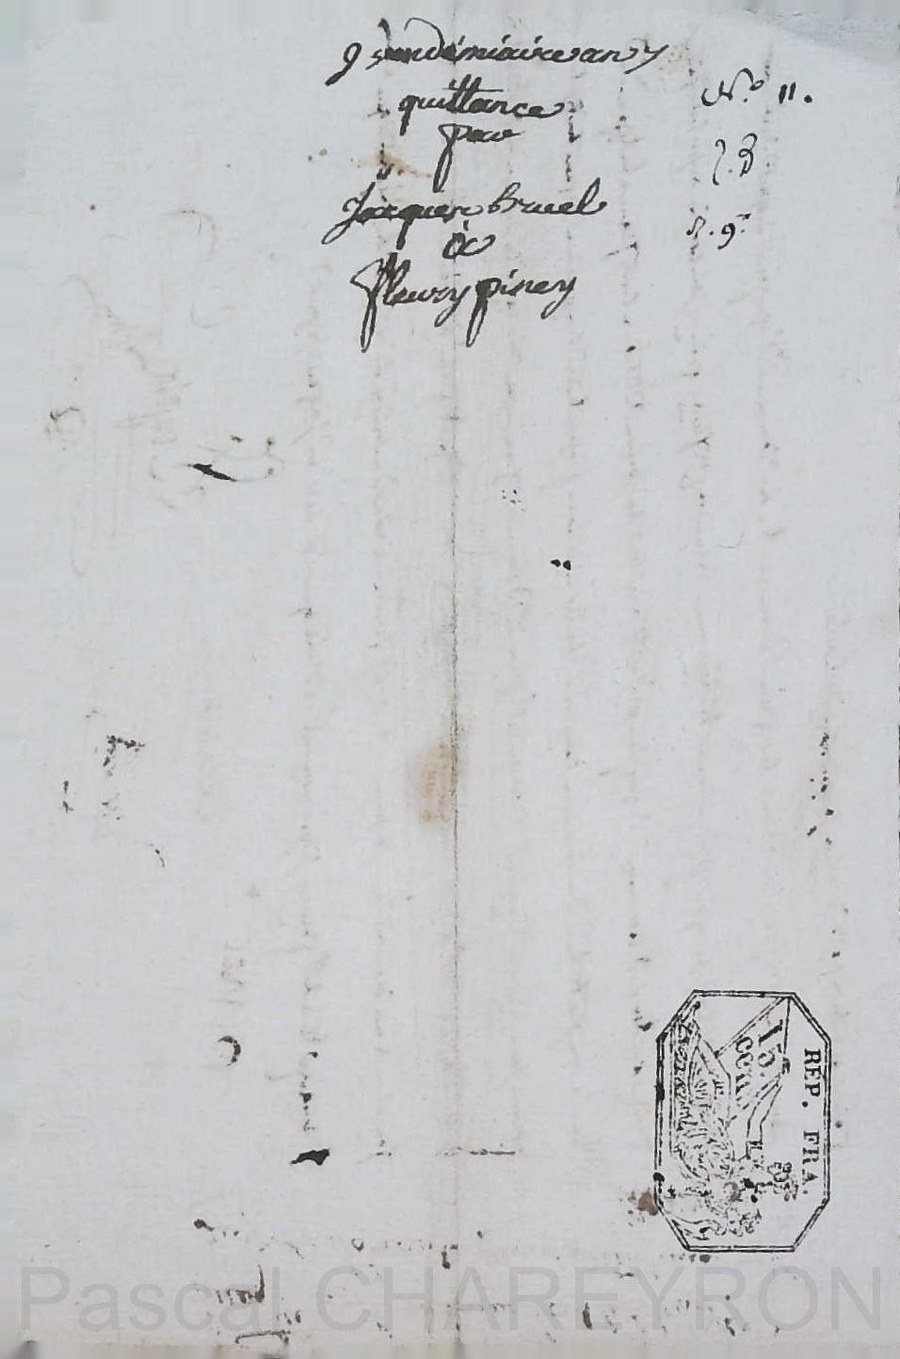 9 vendémiaire an 7
quittance
par
Jacques bruel
à
fleury piney
N.º 11.
REP. FRA.
15
cen
Pascal CHAREYRON